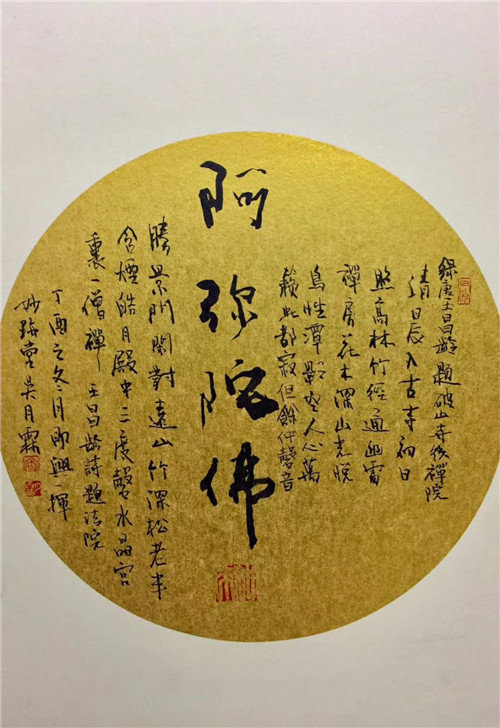 錄唐王昌齡題破山寺後禪院
清晨入古寺初日
照高林竹徑通幽處
禪房花木深山光悅
鳥性潭影空人心萬
籟此都寂但餘钟磬音
阿弥陀佛
勝景門閑對遠山竹深松老半
含煙皓月殿中三度磬水晶宮
裏一僧禪 王昌齡詩題法院
丁酉之冬月即興一揮
吳月霖